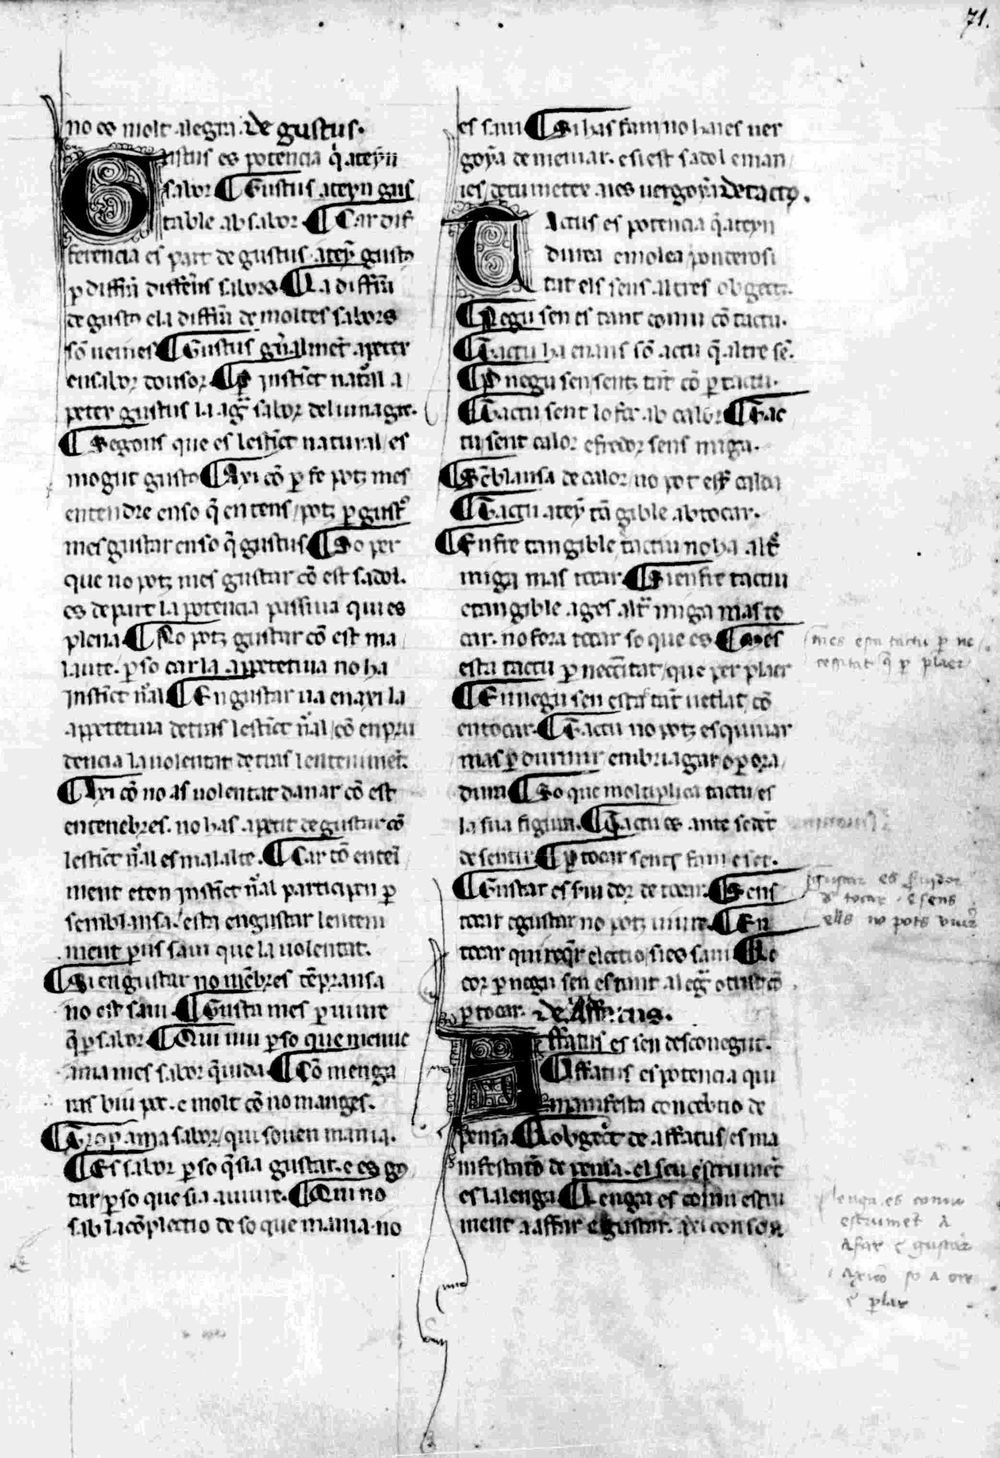 71.
no es molt alegra. de gustus.
Gustus es potencia q̄ ateyn
sabor ¶ Gustus ateyn gus
table ab sabor ¶ Car dif
ferencia es part de gustus ateȳ gusto
ꝑ diffīni differēs sabors ¶ La diffīni
de gusto e la diffīni de moltes sabors
sō veines ¶ Gustus gn̄alment apetex
en sabor ¶ ꝑ instīct natural a
petex gustus la agr̄ sabor del vinagre.
¶ Segons que es lestīct natural es
mogut gusto ¶ Axi cō ꝑ fe potz mes
entendre en so q̄ entens, potz ꝑ gust
mes gustar en so q̄ gustus ¶ So per
que no potz mes gustar cō est sadol.
es de part la potencia passiva qui es
plena ¶ No potz gustar cō est ma
laute. ꝑ so car la appetetiva no ha
instīct n̄al ¶ En gustar va en axi la
appetetiva detras lestīct n̄al, cō en pru
dencia la volentat detras lentenimēt.
¶ Axi cō no as volentat danar cō est
en tenebres. no has apetit de gustar cō
lestīct n̄al es malalte. ¶ Car cō enteni
ment et en instīct n̄al participen ꝑ
semblansa. esta en gustar lenteni
ment pus savi que la volentat.
¶ Si en gustar no mēbres tēpransa
no est savi. ¶ Gusta mes ꝑ viure
q̄ ꝑ sabor ¶ Qui viu ꝑ so que menuc
ama mes sabor q̄ vida. ¶ Cō menga
ras viu pā. e molt cō no manges.
¶ Trop ama sabor, qui soven mania.
¶ Es sabor ꝑ so q̄ sia gustat. e es go
tar ꝑ so que sia aviure. ¶ Qui no
sab la cōplectio de so que mania no
es savi ¶ Si has fam no haies ver
goȳa de meniar. e si est sadol e man
ies deu metex aies vergoȳa. de tacto.
Tactus es potencia q̄ ateyn
durea e molea ponderosi
tat els sens altres obgects.
¶ Negu sen es tant comu cō tactu.
¶ Tactu ha enans sō actu q̄ altre sē.
¶ ꝑ negu sen sentz tāt cō ꝑ tactu.
¶ Tactu sent lo fer ab calor ¶ Tac
tu sent calor e fredor sens miga.
¶ Sēblansa de calor, no pot esser calda
¶ Tactu ateȳ tā gible ab tocar.
¶ Enfre tangible tactiu no ha altr̄
miga mas tocar ¶ Si enfre tactiu
e tangible ages altr̄ miga mas to
car. no fora tocar so que es ¶ Mes
esta tactu ꝑ necessitat, que per plaer
¶ En negu sen esta tāt vetlat, cō
en tocar. ¶ Tactu no potz esquivar
mas ꝑ durmir embriagar o ꝑ ora
dura ¶ So que moltiplica tactu es
la sua figura. ¶ Tactu es ante sedēt
de sentir ¶ ꝑ tocar sents fam e set.
¶ Gustar es servidor de tocar. ¶ Sens
tocar e gustar no potz viure. ¶ En
tocar qui reqr̄ electio, sies savi ¶ Ne
cor ꝑ negu sen es tant alegr̄ o trist cō
ꝑ tocar. de Affatus.
Affatus es sen desconegut.
¶ Affatus es potencia qui
manifesta concebtio de
pensa. ¶ Lobgect de affatus, es ma
nifestatō de pensa. el seu estrumēt
es la lenga ¶ Lenga es comu estru
ment a affar e gustar. axi con son
mes esta tactu ꝑ ne
cessitat q̄ ꝑ plaer
gustar es servidor
d tocar. e sens
ells no pots viure
lenga es comu
estrumēt a
afar e gustar
axi co so a ore
e ꝑlar